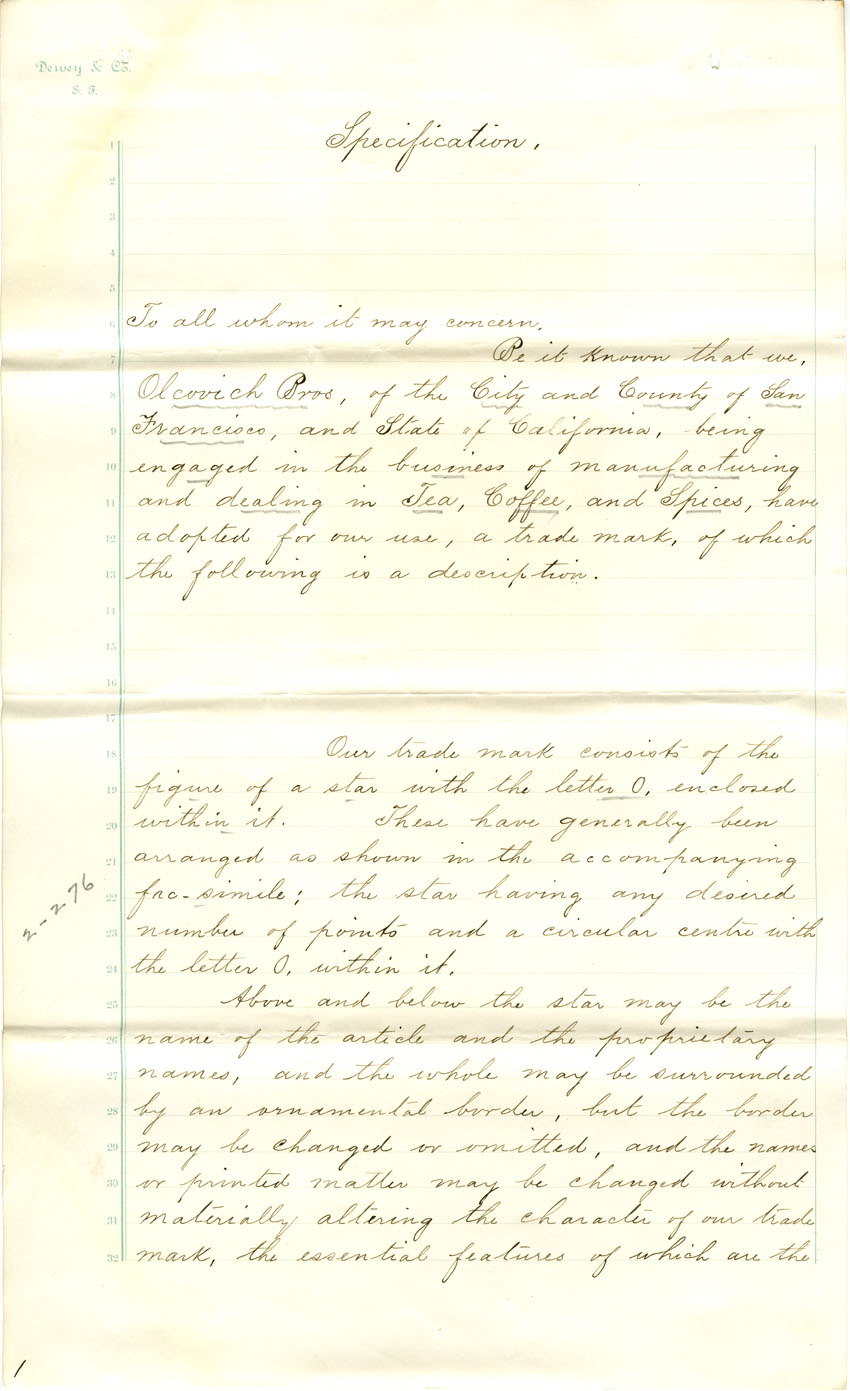 Dewey & Co.
S. F.
Specification.
1
2
3
4
5
6 To all whom it may concern.
7 Be it known that we,
8 Olcovich Bros, of the City and County of San
9 Francisco, and State of California, being
10 engaged in the business of manufacturing
11 and dealing in Tea, Coffee, and Spices, have
12 adopted for our use, a trade mark, of which
13 the following is a description.
14
15
16
17
18 Our trade mark consists of the
19 figure of a star with the letter O, enclosed
20 within it. These have generally been
21 arranged as shown in the accompanying
22 fac-simile; the star having any desired
23 number of points and a circular centre with
24 the letter O, within it.
25 Above and below the star may be the
26 name of the article and the proprietary
27 names, and the whole may be surrounded
28 by an ornamental border, but the border
29 may be changed or omitted, and the names
30 or printed matter may be changed without
31 materially altering the character of our trade
32 mark, the essential features of which are the
2-2-76
1